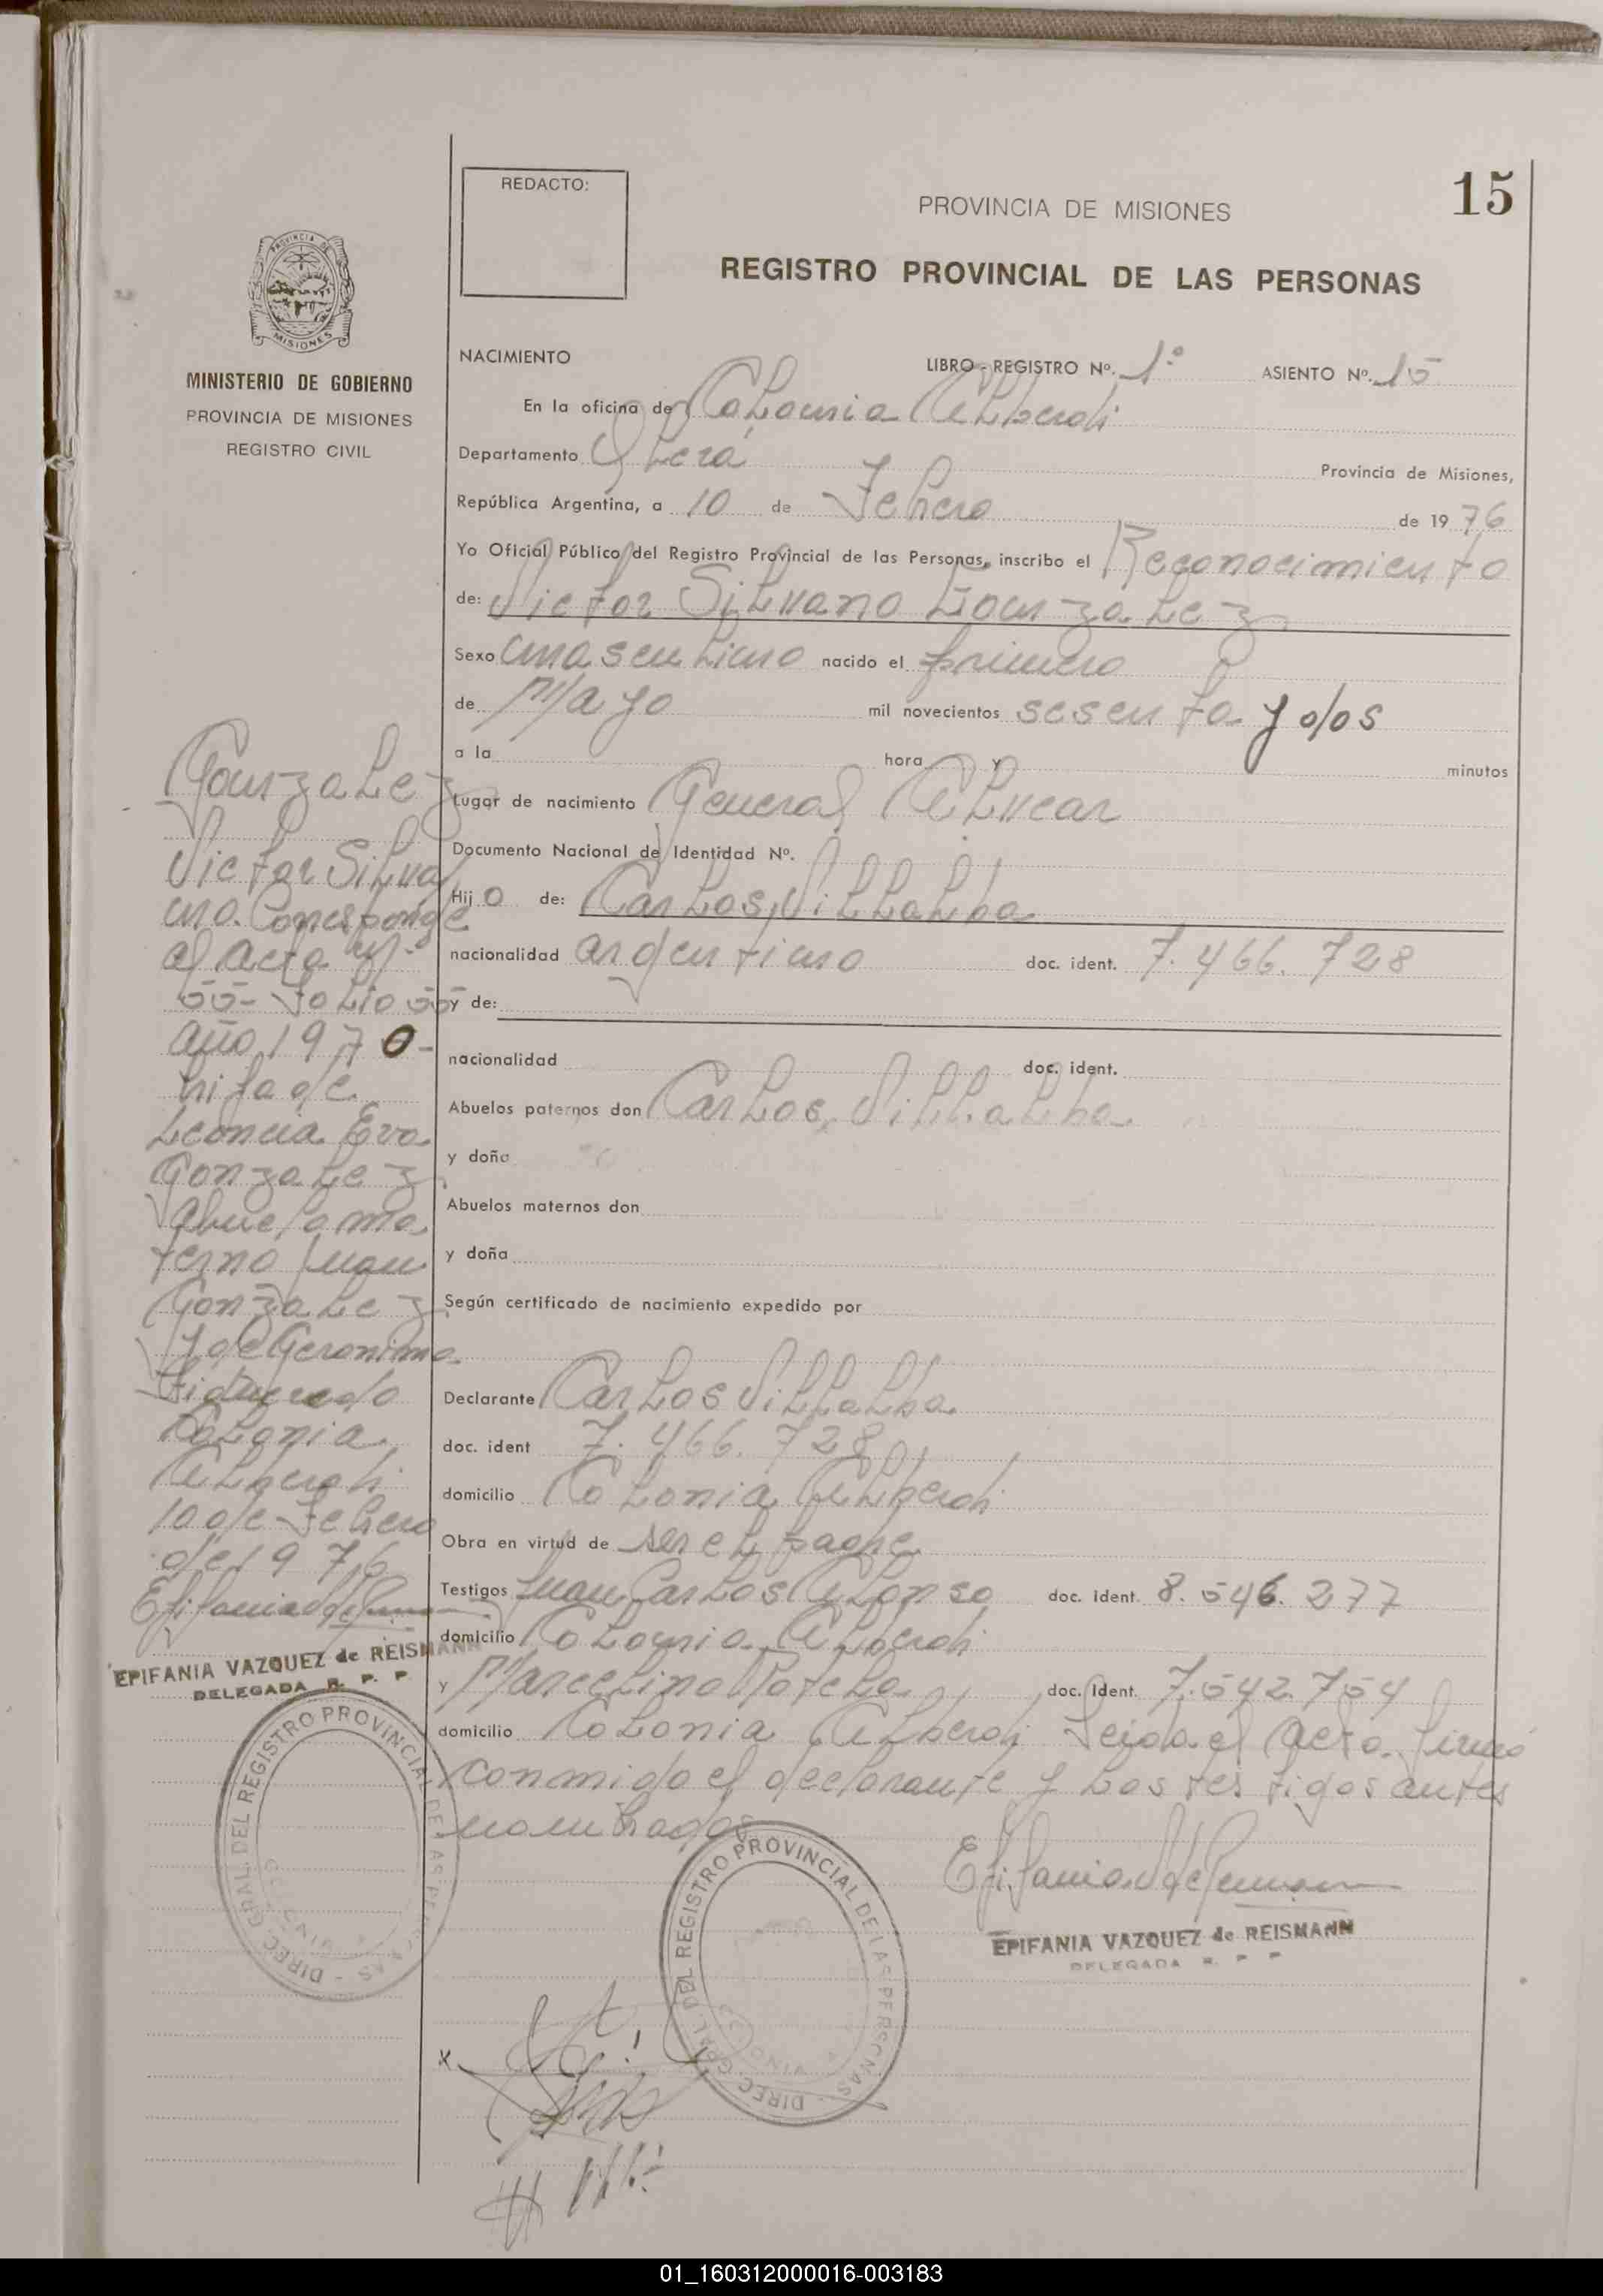 REDACTO:
PROVINCIA DE MISIONES
15
REGISTRO PROVINCIAL DE LAS PERSONAS
PROVINCIA DE
MISIONES
MINISTERIO DE GOBIERNO
PROVINCIA DE MISIONES
REGISTRO CIVIL
NACIMIENTO LIBRO - REGISTRO Nº. 1º ASIENTO Nº. 15
En la oficina de Colonia Alberdi
Departamento Oberá Provincia de Misiones,
República Argentina, a 10 de Febrero de 1976
Yo Oficial Público del Registro Provincial de las Personas, inscribo el Reconocimiento
de: Victor Silvano Gonzalez
Sexo masculino nacido el primero
de Mayo mil novecientos sesenta y dos
a la hora y minutos
Lugar de nacimiento General Alvear
Documento Nacional de Identidad Nº.
Hijo de: Carlos Villalba
nacionalidad argentino doc. ident. 7.466.728
y de:
nacionalidad doc. ident.
Abuelos paternos don Carlos Villalba
y doña
Abuelos maternos don
y doña
Según certificado de nacimiento expedido por
Declarante Carlos Villalba
doc. ident 7.466.728
domicilio Colonia Alberdi
Obra en virtud de ser el padre
Testigos Juan Carlos Alonso doc. ident. 8.546.277
domicilio Colonia Alberdi
y Marcelino doc. Ident. 7.542.754
domicilio Colonia Alberdi Leida el acta firmó
conmigo el declarante y los testigos antes
nombrados
EPIFANIA VAZQUEZ de REISMANN
DELEGADA R. P. P.
DIREC. GRAL. DEL REGISTRO PROVINCIAL DE LAS PERSONAS
x
Gonzalez
Victor Silva
no. Corresponde
al acta Nº
55- Folio 55
año 1970-
hijo de
Leoncia Eva
Gonzalez
abuelo ma
terno Juan
Gonzalez
y de Geronima
Colonia
Alberdi
10 de Febrero
de 1976
EPIFANIA VAZQUEZ de REISMANN
DELEGADA R. P. P.
DIREC. GRAL. DEL REGISTRO PROVINCIAL DE LAS PERSONAS
01_160312000016-003183